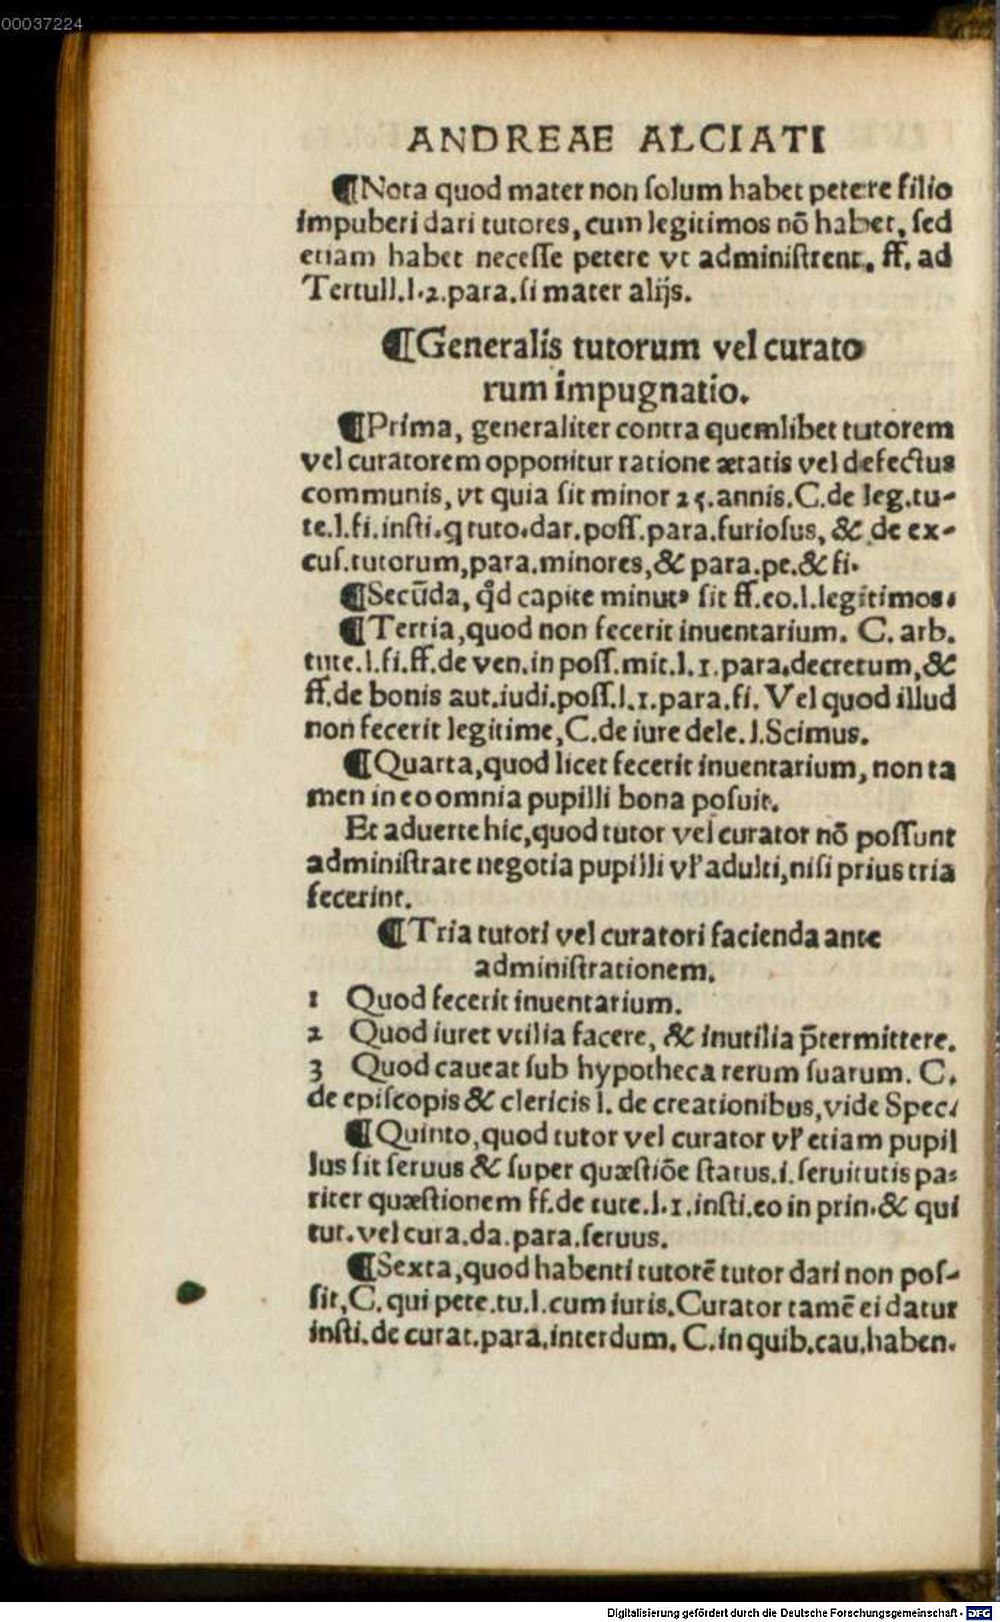 00037224
ANDREAE ALCIATI
¶Nota quod mater non ſolum habet petere filio
impuberi dari tutores, cum legitimos nō habet, ſed
etiam habet neceſſe petere vt adminiſtrent. ff. ad
Tertull.l.2.para.ſi mater alijs.
¶Generalis tutorum vel curato
rum impugnatio.
¶Prima, generaliter contra quemlibet tutorem
vel curatorem opponitur ratione ætatis vel defectus
communis, vt quia ſit minor 25.annis.C.de leg.tu-
te.l.fi.inſti.q tuto.dar.poſſ.para.furioſus, & de ex-
cuſ.tutorum,para.minores,& para.pe.& fi.
¶Secūda, qd capite minutꝰ ſit ff.eo.l.legitimos.
¶Tertia,quod non fecerit inuentarium. C. arb.
tute.l.fi.ff.de ven.in poſſ.mit.l.1.para.decretum,&
ff.de bonis aut.iudi.poſſ.l.1.para.fi. Vel quod illud
non fecerit legitime,C.de iure dele.l.Scimus.
¶Quarta,quod licet fecerit inuentarium, non ta
men in eo omnia pupilli bona poſuit.
Et aduerte hic,quod tutor vel curator nō poſſunt
adminiſtrare negotia pupilli vꝉ adulti,niſi prius tria
fecerint.
¶Tria tutori vel curatori facienda ante
adminiſtrationem.
1 Quod fecerit inuentarium.
2 Quod iuret vtilia facere, & inutilia p̄termittere.
3 Quod caueat ſub hypotheca rerum ſuarum. C.
de epiſcopis & clericis l. de creationibus,vide Spec.
¶Quinto,quod tutor vel curator vꝉ etiam pupil
lus ſit ſeruus & ſuper quæſtiōe ſtatus.i.ſeruitutis pa-
riter quæſtionem ff.de tute.l.1.inſti.eo in prin.& qui
tut.vel cura.da.para.ſeruus.
¶Sexta,quod habenti tutorē tutor dari non poſ-
ſit,C.qui pete.tu.l.cum iuris.Curator tamē ei datur
inſti.de curat.para.interdum. C.in quib.cau.haben.
Digitalisierung gefördert durch die Deutsche Forschungsgemeinschaft - DFG